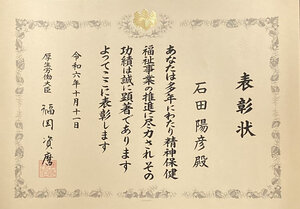 表彰状
石田陽彦殿
あなたは多年にわたり精神保健
福祉事業の推進に尽力されその
功績は誠に顕著であります
よってここに表彰します
令和六年十月十一日
厚生労働大臣
福岡資麿